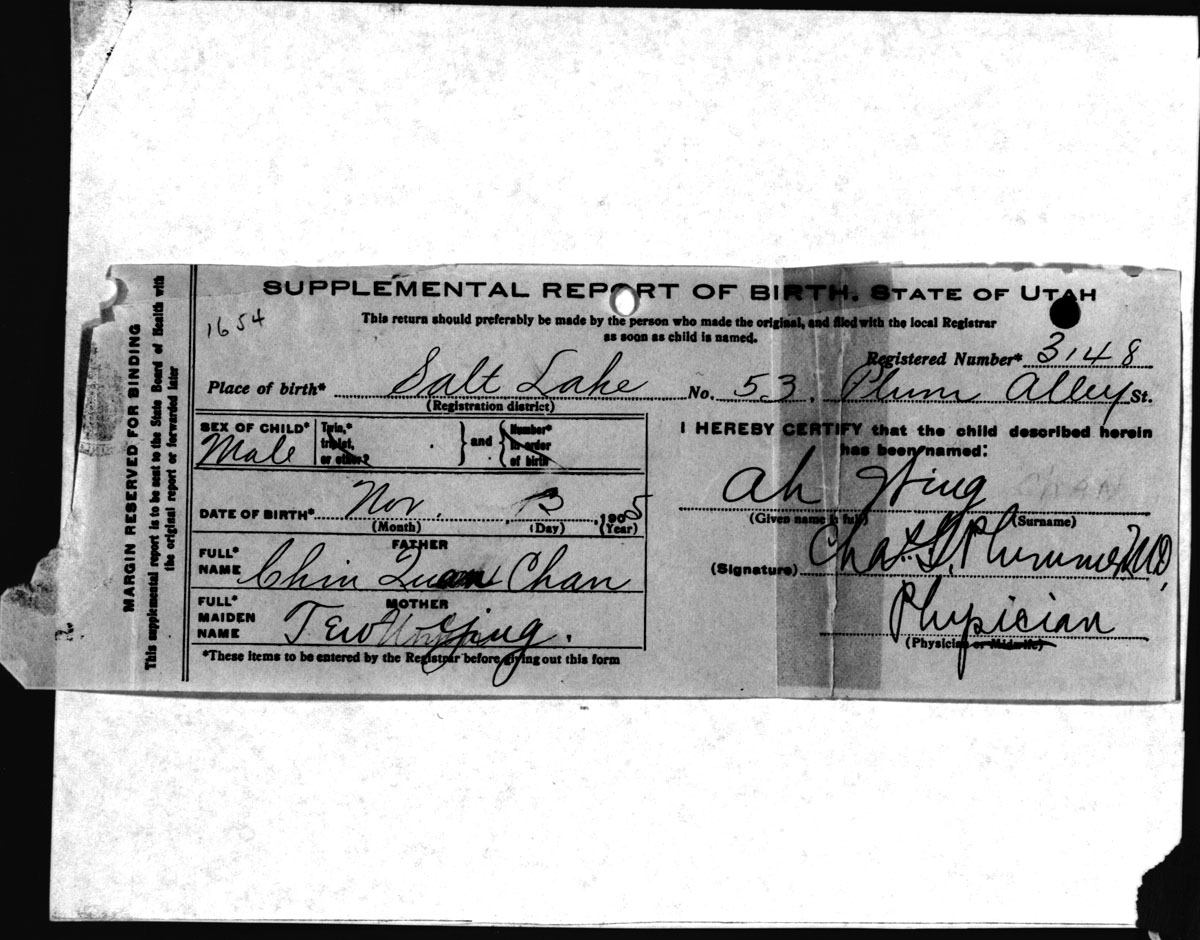 SUPPLEMENTAL REPORT OF BIRTH. STATE OF UTAH
1654
This return should preferably be made by the person who made the original, and filed with the local Registrar
as soon as child is named.
Registered Number* 3148
Place of birth* Salt Lake No. 53, Plum Alley St.
(Registration district)
SEX OF CHILD* Male
Twin,* triplet, or other?
and
Number* in order of birth
DATE OF BIRTH* Nov. 13, 1905
(Month) (Day) (Year)
FATHER
FULL* NAME Chin Quan Chan
MOTHER
FULL* MAIDEN NAME Tew Ying.
*These items to be entered by the Registrar before giving out this form
I HEREBY CERTIFY that the child described herein
has been named:
Ah Wing CHAN
(Given name in full) (Surname)
(Signature) Chas. G. Plummer M.D.
Physician
(Physician or Midwife)
MARGIN RESERVED FOR BINDING
This supplemental report is to be sent to the State Board of Health with
the original report or forwarded later